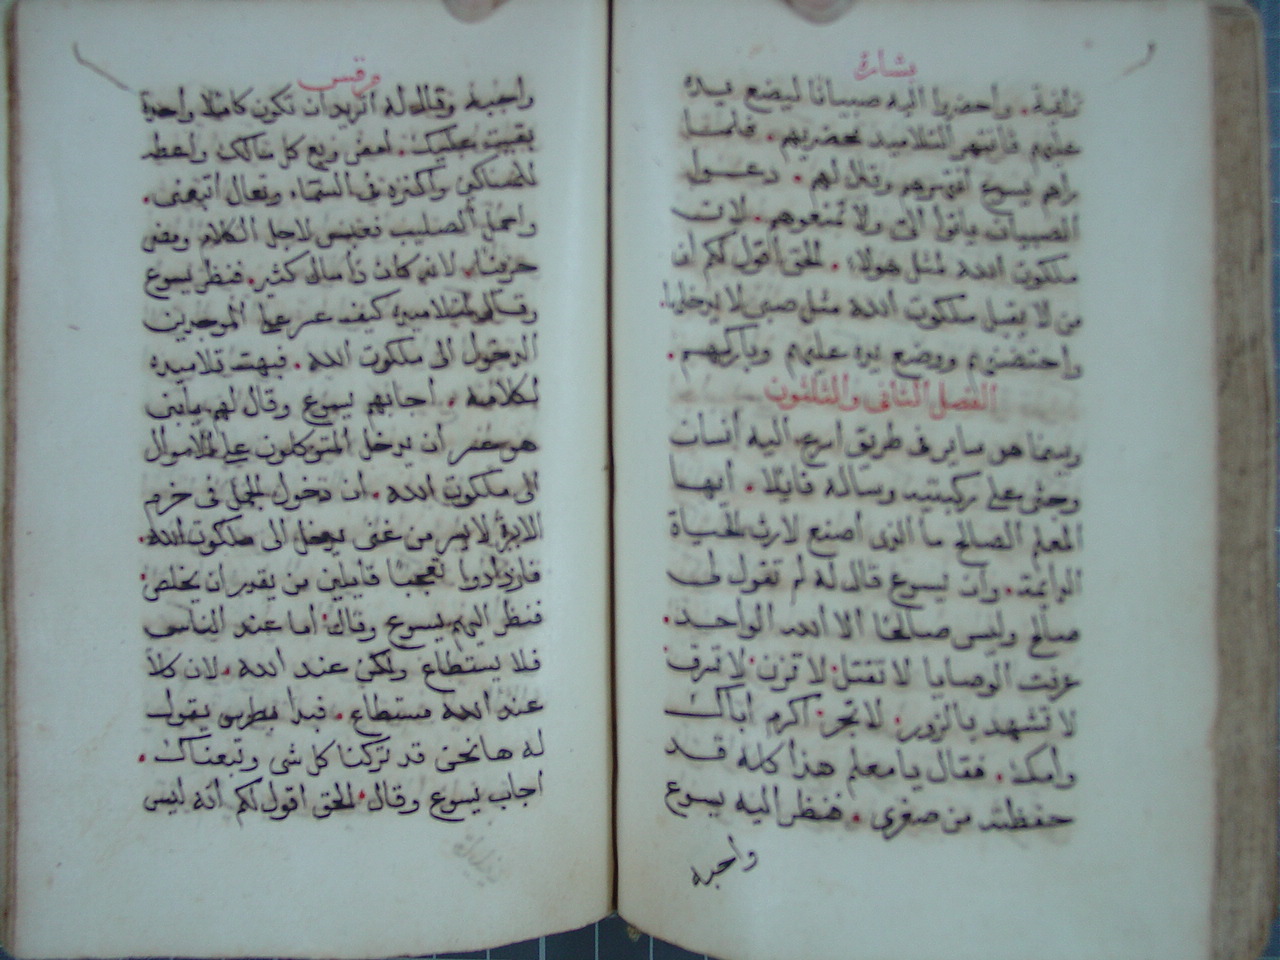 بشارة
زانية. واحضروا اليه صبيانا ليضع يده
عليهم فانتهر التلاميذ محضريهم. فلما
راهم يسوع انتهرهم وقال لهم. دعوا
الصبيان ياتوا الى ولا تمنعوهم. لان
ملكوت الله لمثل هولاء. الحق اقول لكم ان
من لا يقبل ملكوت الله مثل صبى لا يدخلها.
واحتضنهم ووضع يده عليهم وباركهم.
الفصل الثانى والثلثون
وبينما هو ساير فى طريق اسرع اليه انسان
وجثى على ركبتيه وساله قايلا. ايها
المعلم الصالح ما الذى اصنع لارث الحياة
الدايمة. وان يسوع قال له لم تقول لى
صالح وليس صالحا الا الله الواحد.
عرفت الوصايا لا تقتل لا تزن لا تسرق
لا تشهد بالزور. لا تجر. اكرم اباك
وامك. فقال يا معلم هذا كله قد
حفظته من صغرى. فنظر اليه يسوع
واحبه
مرقس
واحبه وقال له اتريد ان تكون كاملا واحدة
بقيت عليك. امض وبع كل مالك واعط
للمساكين واكنزه فى السماء وتعال اتبعنى.
واحمل الصليب فعبس لاجل الكلام ومضى
حزينا. لانه كان ذا مال كثير. فنظر يسوع
وقال لتلاميذه كيف عسر على الموجدين
الدخول الى ملكوت الله. فبهت تلاميذه
لكلامه. اجابهم يسوع وقال لهم يابنى
هو عسر ان يدخل المتوكلون على الاموال
الى ملكوت الله. ان دخول الجمل فى خرم
الابرة لايسر من غنى يدخل الى ملكوت الله.
فازدادوا تعجبا قايلين من يقدر ان يخلص
فنظر اليهم يسوع وقال اما عند الناس
فلا يستطاع ولكن عند الله. لان كلا
عند الله مستطاع. فبدا بطرس يقول
له هانحن قد تركنا كل شى وتبعناك.
اجاب يسوع وقال الحق اقول لكم انه ليس